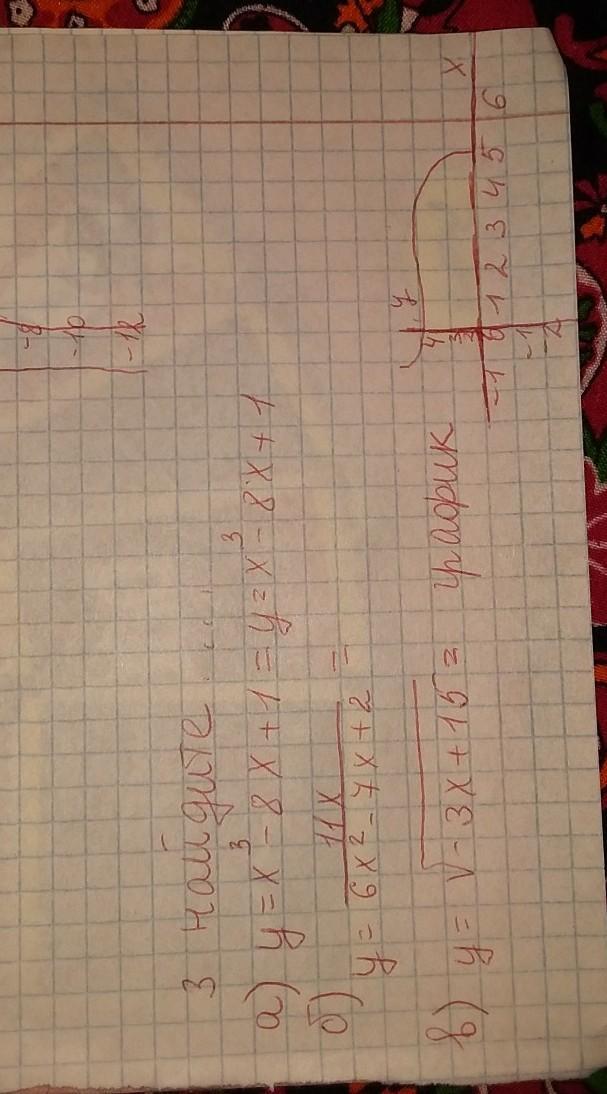 -8
-10
-12
3 найдите ....
а) y = x³ - 8x + 1 = y = x³ - 8x + 1
б) 11x
y = 6x² - 7x + 2 =
в) y = √-3x + 15 = график
y
4
3
2
-1 0 1 2 3 4 5 6 x
-1
-2